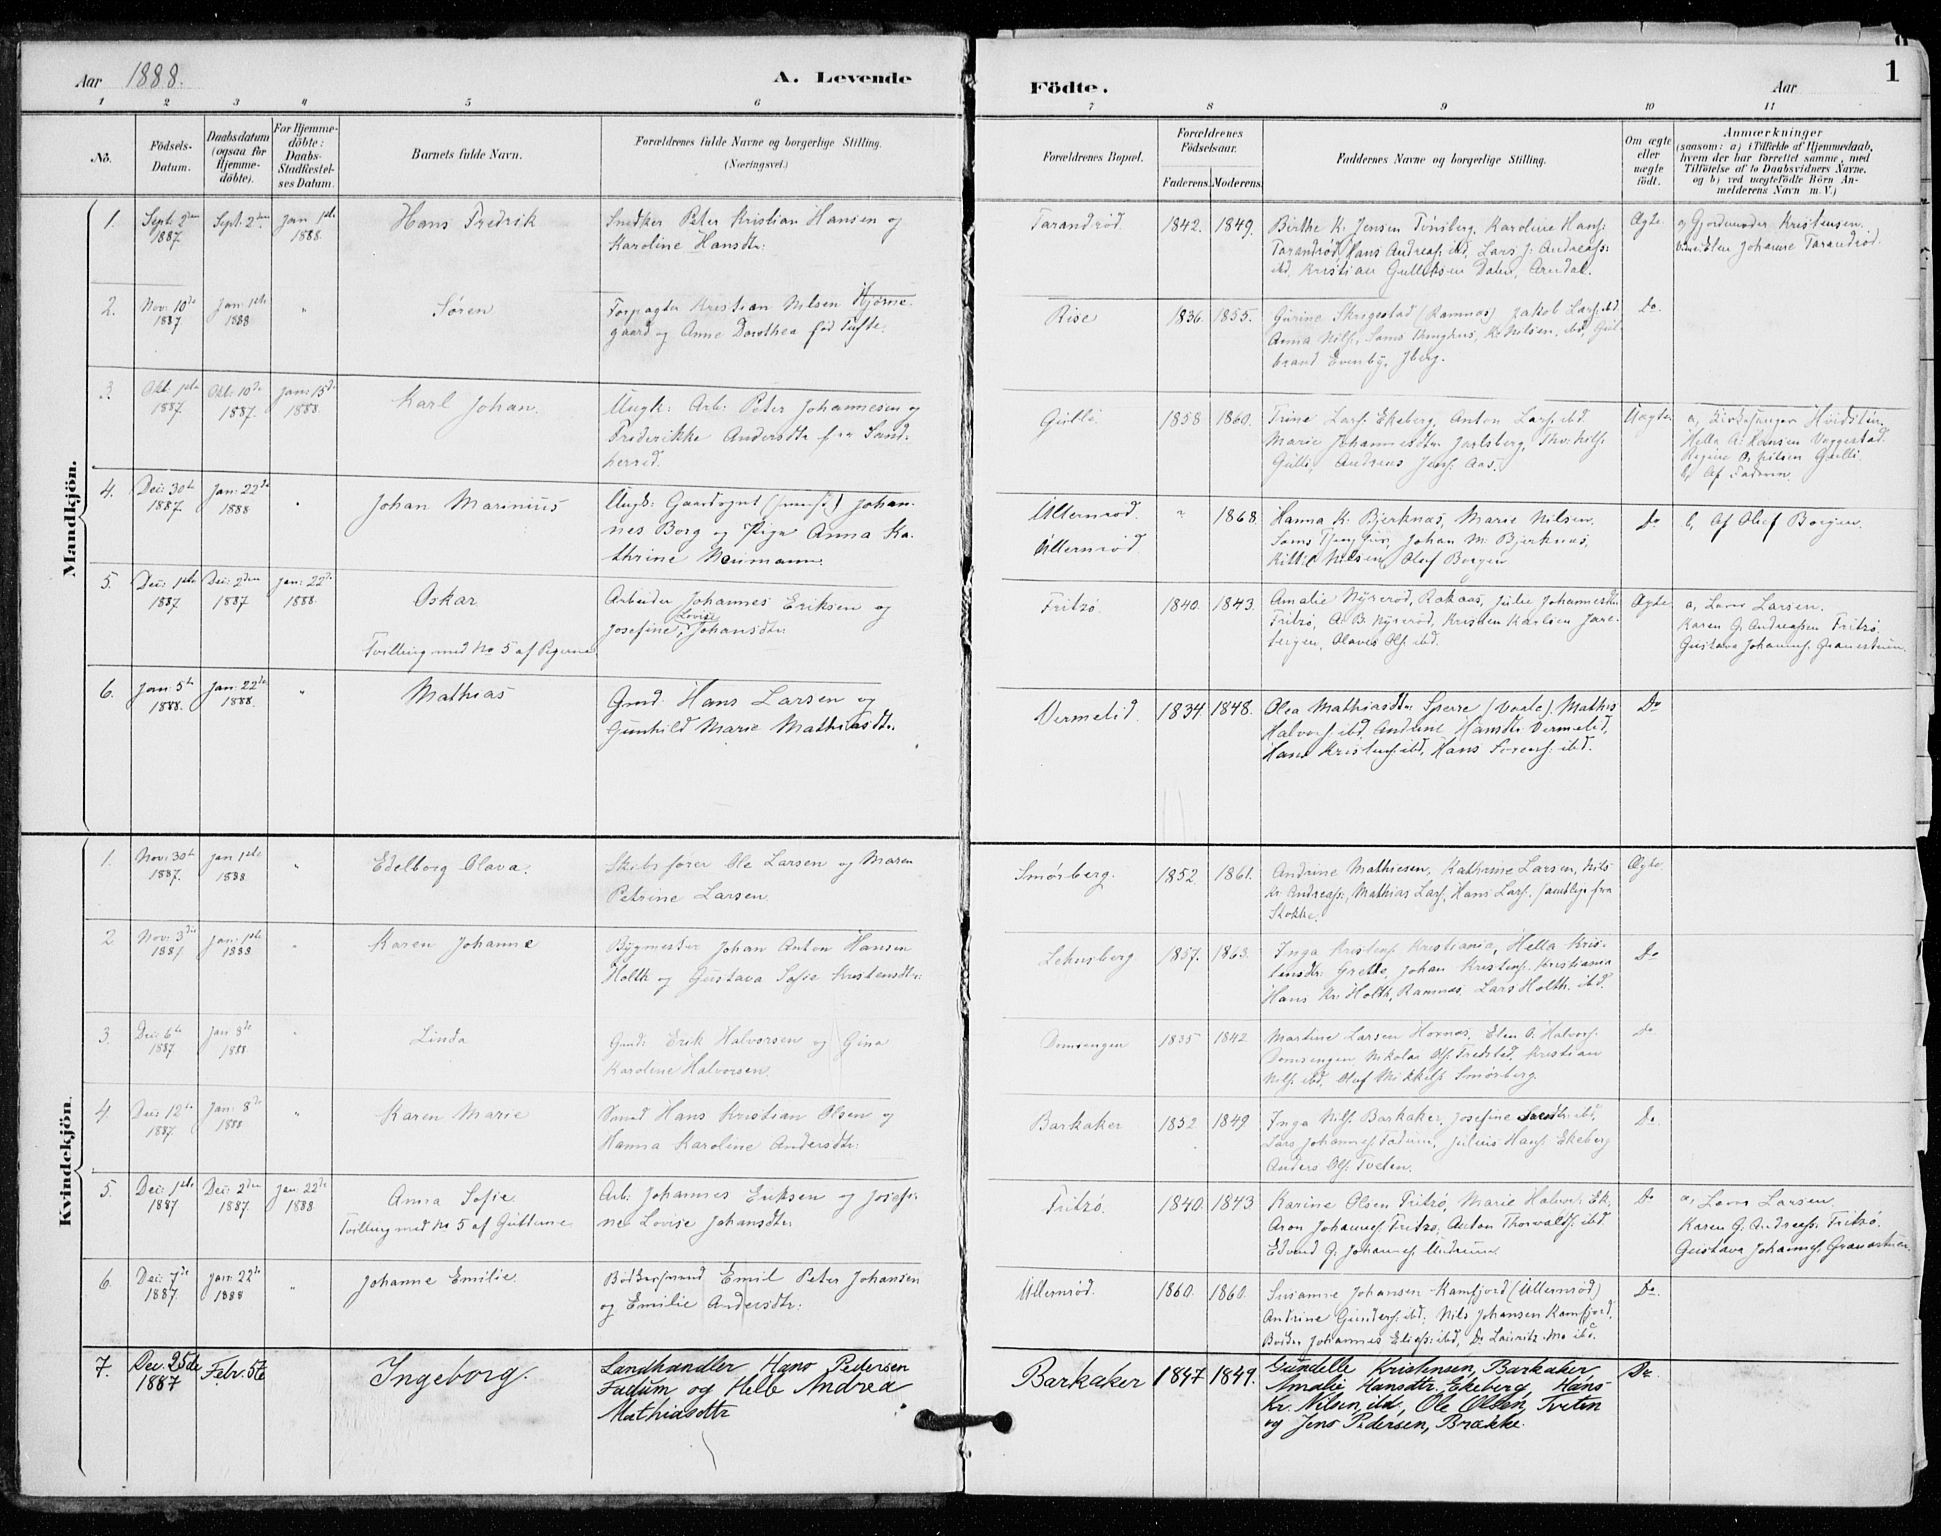 Aar 1888.
A. Levende
Födte.
Aar
1
1 2 3 4 5 6 7 8 9 10 11
No.
Födsels-Datum.
Daabsdatum (ogsaa för Hjemme-döbte).
For Hjemme-döbte: Daabs-Stadfæstel-ses Datum.
Barnets fulde Navn.
Forældrenes fulde Navne og borgerlige Stilling. (Næringsvei.)
Forældrenes Bopæl.
Forældrenes Födselsaar.
Faderens. Moderens.
Faddernes Navne og borgerlige Stilling.
Om ægte eller uægte födt.
Anmærkninger
(saasom: a) i Tilfælde af Hjemmedaab, hvem der har forrettet samme, med Tilföielse af to Daabsvidners Navne, og b) ved uægtefödte Börn An-melderens Navn m. V.)
Mandkjön.
1. Sept: 2den 1887 Sept: 2den Jan: 1ste 1888. Hans Fredrik
Snedker Peter Kristian Hansen og
Karoline Hansdtr:
Tarandrød 1842. 1849.
Birthe K. Jensen Tønsberg, Karoline Hans:
Tarandrød, Hans Andreas: ibd, Lars J. Andreass:
ibd, Kristian Gulliksen Dalen, Arendal.
Ægte.
a, Gjordemoder Kristensen.
Johanne Tarandrød.
2. Nov: 10de 1887 Jan: 1ste 1888 " Søren
Forpagter Kristian Nilsen Hjørne-
gaard og Anne Dorothea fød Tufte.
Rise 1836. 1855.
Gurine Skregestad (Ramnæs) Jakob Lars: ibd
Anna Nils:, K. Nilsen, ibd, Gul-
brand Evenby, Iberg.
Do.
3. Okt: 1ste 1887. Okt: 10de 1887. Jan: 15de 1888. Karl Johan.
Ungk: Arb: Peter Johannesen og
Friderikke Andersdtr fra Sand-
herred.
Gulli 1858 1860.
Trine Lars: Ekeberg, Anton Lars: ibd
Marie Johannesdtr. Jarlsberg,
Gulli, Andreas Jens: Aas.
Uægte
a, Kirkesanger Hvidsten
Hella A. Hansen Veggestad
Regine O. Nilsen Gulli.
b, Af Faderen.
4. Dec: 30te 1887 Jan: 22de 1888 " Johan Marinius
Ungk: Gaardsgut Johan-
nes Borg og Pige Anna Ka-
thrine Neumann.
Ullernrød.
Ullernrød.
" 1868.
Hanna K. Bjerknæs, Marie Nilsen,
Johan M. Bjerknæs,
Nilsen, Olaf Borgen
Do
b, Af Olof Borgen.
5. Dec: 1ste 1887 Dec: 2den 1887 Jan: 22de 1888. Oskar
Tvilling med No 5 af Pigerne
Arbeider Johannes Eriksen og
Josefine Lovise Johansdtr:
Fritzø. 1840. 1843.
Amalie Nyrerød, Julie Johannesdtr.
Fritzø, A. B. Nyrerød, Kristen Karlsen Jare-
teigen, Olaves Ols: ibd.
Ægte.
a, Lovis Larsen.
Karen G. Andreassen Fritzø,
Gustava Johannes:
6. Jan: 5te 1888. Jan: 22de 1888. " Mathias
Grd: Hans Larsen og
Gunhild Marie Mathiasdtr.
Vermelid. 1834. 1848.
Olea Mathiasdtr: Sperre (Vaale), Mathis
Halvors: ibd, Andrine Hansdtr: Vermelid,
Hans Kristens: ibd, Hans Sørens: ibd.
Do
Kvindekjön.
1. Nov: 30te 1887. Jan 1ste 1888. " Edelborg Olava.
Skibsfører Ole Larsen og Maren
Petrine Larsen
Smørberg. 1852 1861.
Andrine Mathiesen, Kathrine Larsen, Nils
Kr. Andreass:, Mathias Lars:, Hans Lars:, samtlige fra
Stokke.
Ægte.
2 Nov: 3die 1887 Jan: 1ste 1888 " Karen Johanne
Bygmester Johan Anton Hansen
Holth og Gustava Sofie Kristensdtr:
Lehnsberg 1857. 1863.
Inga Kristens: Kristiania, Hella Kris-
tensdtr: Grette, Johan Kristens: Kristiania
Hans Kr. Holth, Ramnæs, Lars Holth, ibd.
Do
3. Dec: 6te 1887. Jan: 8de 1888. " Linda
Grd: Erik Halvorsen og Gina
Karoline Halvorsen.
Domsengen 1835 1842
Martine Larsen Hornæs, Elen A. Halvors:
Domsengen Nikolai Ols: Kristian
Nils: ibd. Oluf Mikkels: Smørberg.
Do
4. Dec: 12te 1887. Jan: 8de 1888 " Karen Marie
Smed Hans Kristian Olsen og
Hanna Karoline Andersdtr:
Barkaker 1852. 1849
Inga Nils: Barkaker, Josefine ibd,
Lars Johannes: Fadum, Julius Hans: Ekeberg
Anders Ols: Tveten.
Do.
5. Dec: 1ste 1887 Dec: 2den 1887. Jan: 22de 1888 Anna Sofie
Tvilling med No 5 af Gutterne
Arb: Johannes Eriksen og Josefi-
ne Lovise Johansdtr:
Fritzø. 1840. 1843
Karine Olsen Fritzø, Marie Halvors: Ek,
Aron Johannes: Fritzø, Anton Thorvalds: ibd.
Edvard G. Johannes: Undrum.
Do
a, Lovis Larsen
Karen G. Andreass: Fritzø.
Gustava Johannes:
6. Dec: 7de 1887. Jan: 22de 1888 " Johanne Emilie.
Bødkersvend Emil Peter Johansen
og Emilie Andersdtr:
Ullernrød. 1860. 1860.
Susanne Johansen Kamfjord (Ullernrød)
Andrine Gunders: ibd, Nils Johansen Kamfjord,
Bødker Johannes Elias: ibd, Do Lauritz Mo ibd.
Do.
7. Dec. 25de 1887 Febr. 5te Ingeborg.
Landhandler Hans Pedersen
Fadum og Helle Andrea
Mathiasdtr
Barkaker 1847 1849.
Gundelle Kristensen, Barkaker
Amalie Hansdtr. Ekeberg, Hans
Kr. Nilsen, ibd, Ole Olsen, Tveten
og Jens Pedersen, Brække.
Do.